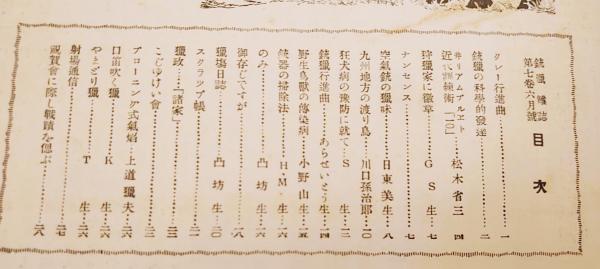 銃獵雜誌
第七卷六月號
目次
クレー行進曲 一
銃獵の科學的發達 二
ヰリアムブルエト
近代訓練術「一〇」 松木省三 四
狩獵家に徽章 GS生 七
ナンセンス 七
空氣銃の獵味 日東美生 八
九州地方の渡り鳥 川口孫治郎 一〇
狂犬病の豫防に就て S生 一二
銃獵行進曲 あらせいとう生 一四
野生鳥獸の傳染病 小野山生 一五
銃器の掃除法 H・M・生 一六
のみ 凸坊生 一六
御存じですが 一八
獵場日誌 凸坊生 二〇
スクラップ帳 二一
獵政「諸家」 二三
こじゆけい會 二三
ブローニング式氣焰 上道獵夫 二六
口笛吹く獵 K生 二六
やまどり獵 T生 二六
射場通信 二七
祝賀會に際し戰蹟を偲ぶ 二八